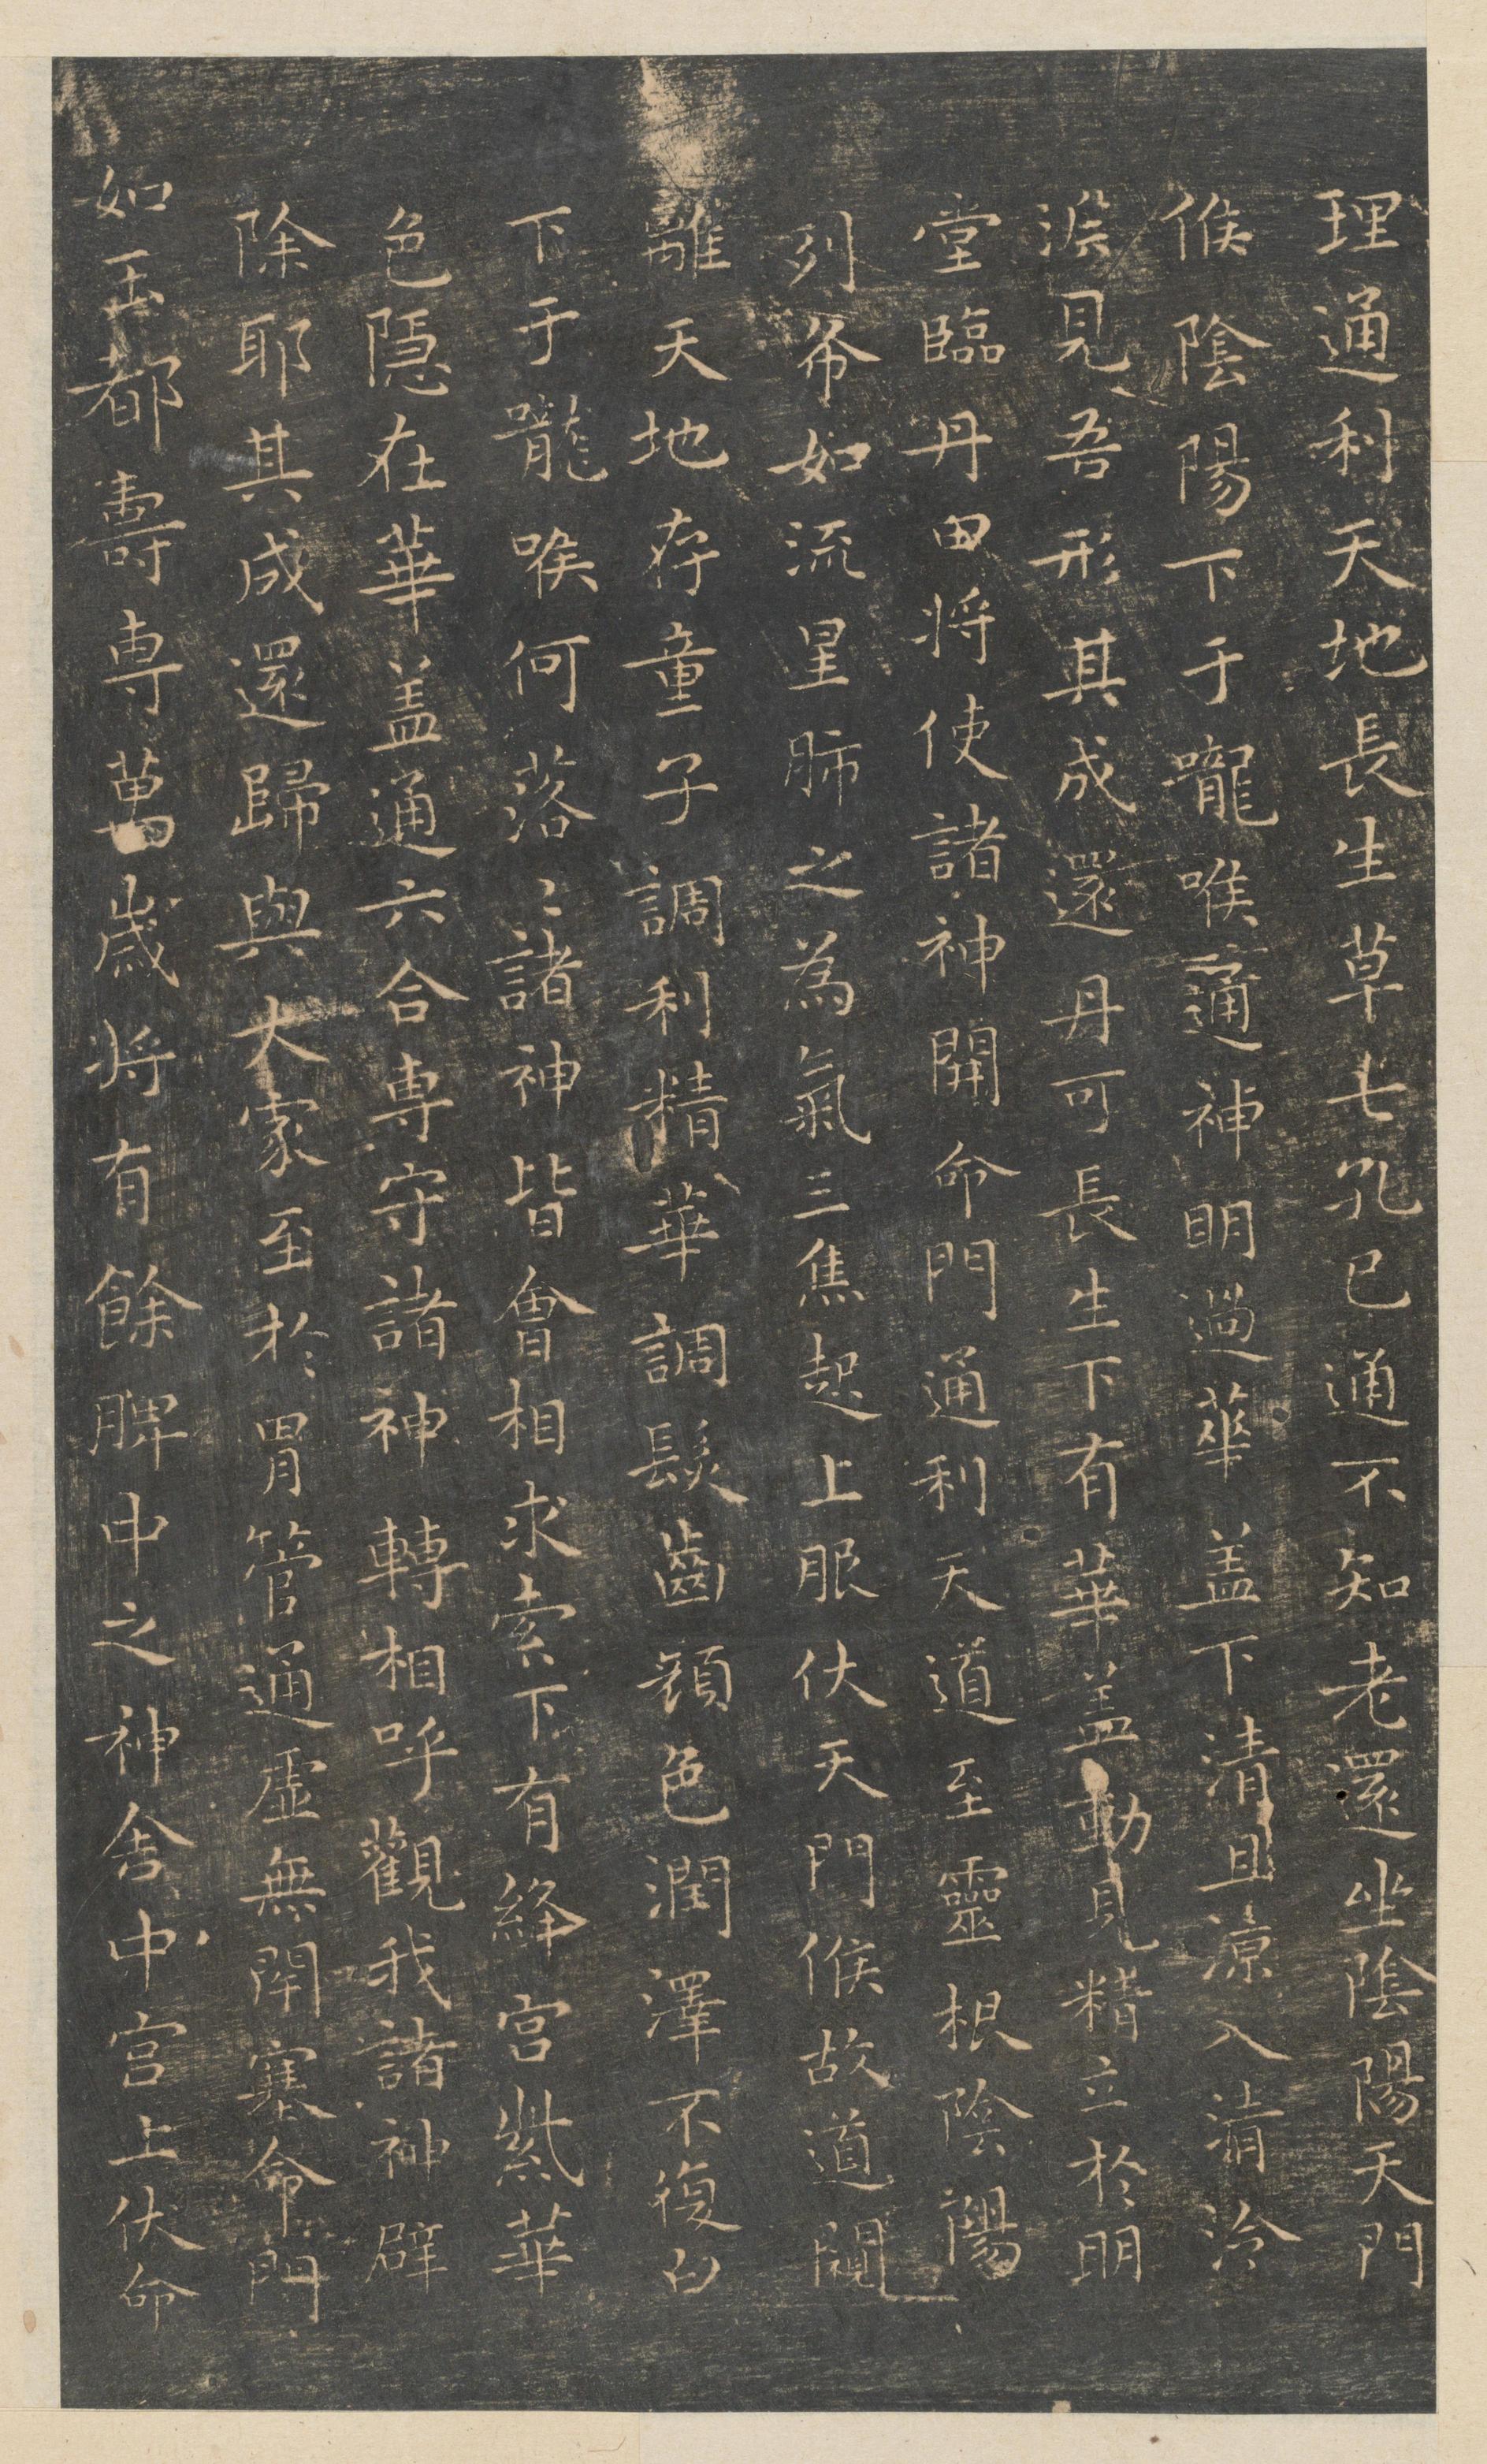 理通利天地長生草七孔已通不知老還坐陰陽天門
候陰陽下于嚨喉通神明過華盖下清且涼入清冷
淵見吾形其成還丹可長生下有華盖動見精立於明
堂臨丹田将使諸神開命門通利天道至靈根陰陽
列布如流星肺之為氣三焦起上服伏天門候故道闚
離天地存童子調利精華調髮齒顔色潤澤不復白
下于嚨喉何落〻諸神皆會相求索下有絳宫紫華
色隱在華盖通六合専守諸神轉相呼觀我諸神辟
除耶其成還歸與大家至於胃管通虚無閉塞命門
如玉都壽専萬歳将有餘脾中之神舍中宫上伏命